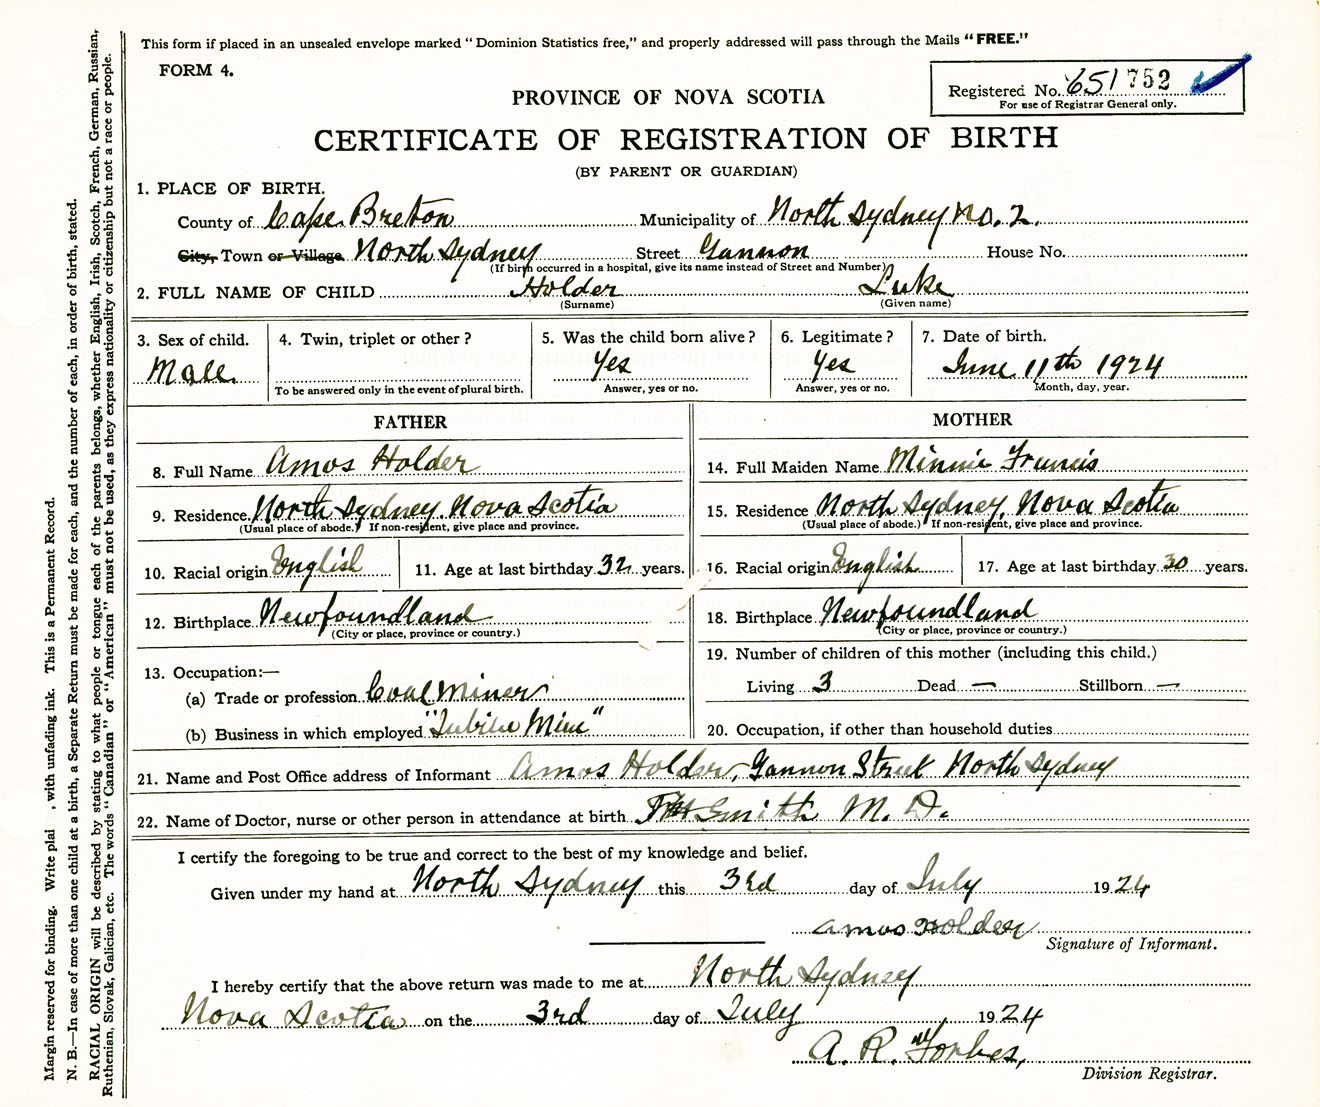 This form if placed in an unsealed envelope marked "Dominion Statistics free," and properly addressed will pass through the Mails "FREE."
FORM 4.
Registered No. 651752
For use of Registrar General only.
PROVINCE OF NOVA SCOTIA
CERTIFICATE OF REGISTRATION OF BIRTH
(BY PARENT OR GUARDIAN)
1. PLACE OF BIRTH.
County of Cape Breton Municipality of North Sydney No. 2.
City, Town or Village North Sydney Street Gannon House No.
(If birth occurred in a hospital, give its name instead of Street and Number)
2. FULL NAME OF CHILD Holder Luke
(Surname) (Given name)
3. Sex of child. 4. Twin, triplet or other? 5. Was the child born alive? 6. Legitimate? 7. Date of birth.
Male Yes Yes June 11th 1924
To be answered only in the event of plural birth. Answer, yes or no. Answer, yes or no. Month, day, year.
FATHER MOTHER
8. Full Name Amos Holder 14. Full Maiden Name Minnie Francis
9. Residence. North Sydney, Nova Scotia 15. Residence North Sydney, Nova Scotia
(Usual place of abode.) If non-resident, give place and province. (Usual place of abode.) If non-resident, give place and province.
10. Racial origin English 11. Age at last birthday 32 years. 16. Racial origin English 17. Age at last birthday 30 years.
12. Birthplace Newfoundland 18. Birthplace Newfoundland
(City or place, province or country.) (City or place, province or country.)
19. Number of children of this mother (including this child.)
13. Occupation:—
(a) Trade or profession Coal Miner Living 3 Dead — Stillborn —
(b) Business in which employed "Jubilee Mine" 20. Occupation, if other than household duties
21. Name and Post Office address of Informant Amos Holder, Gannon Street North Sydney
22. Name of Doctor, nurse or other person in attendance at birth Smith M. D.
I certify the foregoing to be true and correct to the best of my knowledge and belief.
Given under my hand at North Sydney this 3rd day of July 1924
Amos Holder
Signature of Informant.
I hereby certify that the above return was made to me at North Sydney
Nova Scotia on the 3rd day of July 1924
A. R. Forbes,
Division Registrar.
Margin reserved for binding. Write plai , with unfading ink. This is a Permanent Record.
N. B.—In case of more than one child at a birth, a Separate Return must be made for each, and the number of each, in order of birth, stated.
RACIAL ORIGIN will be described by stating to what people or tongue each of the parents belongs, whether English, Irish, Scotch, French, German, Russian,
Ruthenian, Slovak, Galician, etc. The words "Canadian" or "American" must not be used, as they express nationality or citizenship but not a race or people.